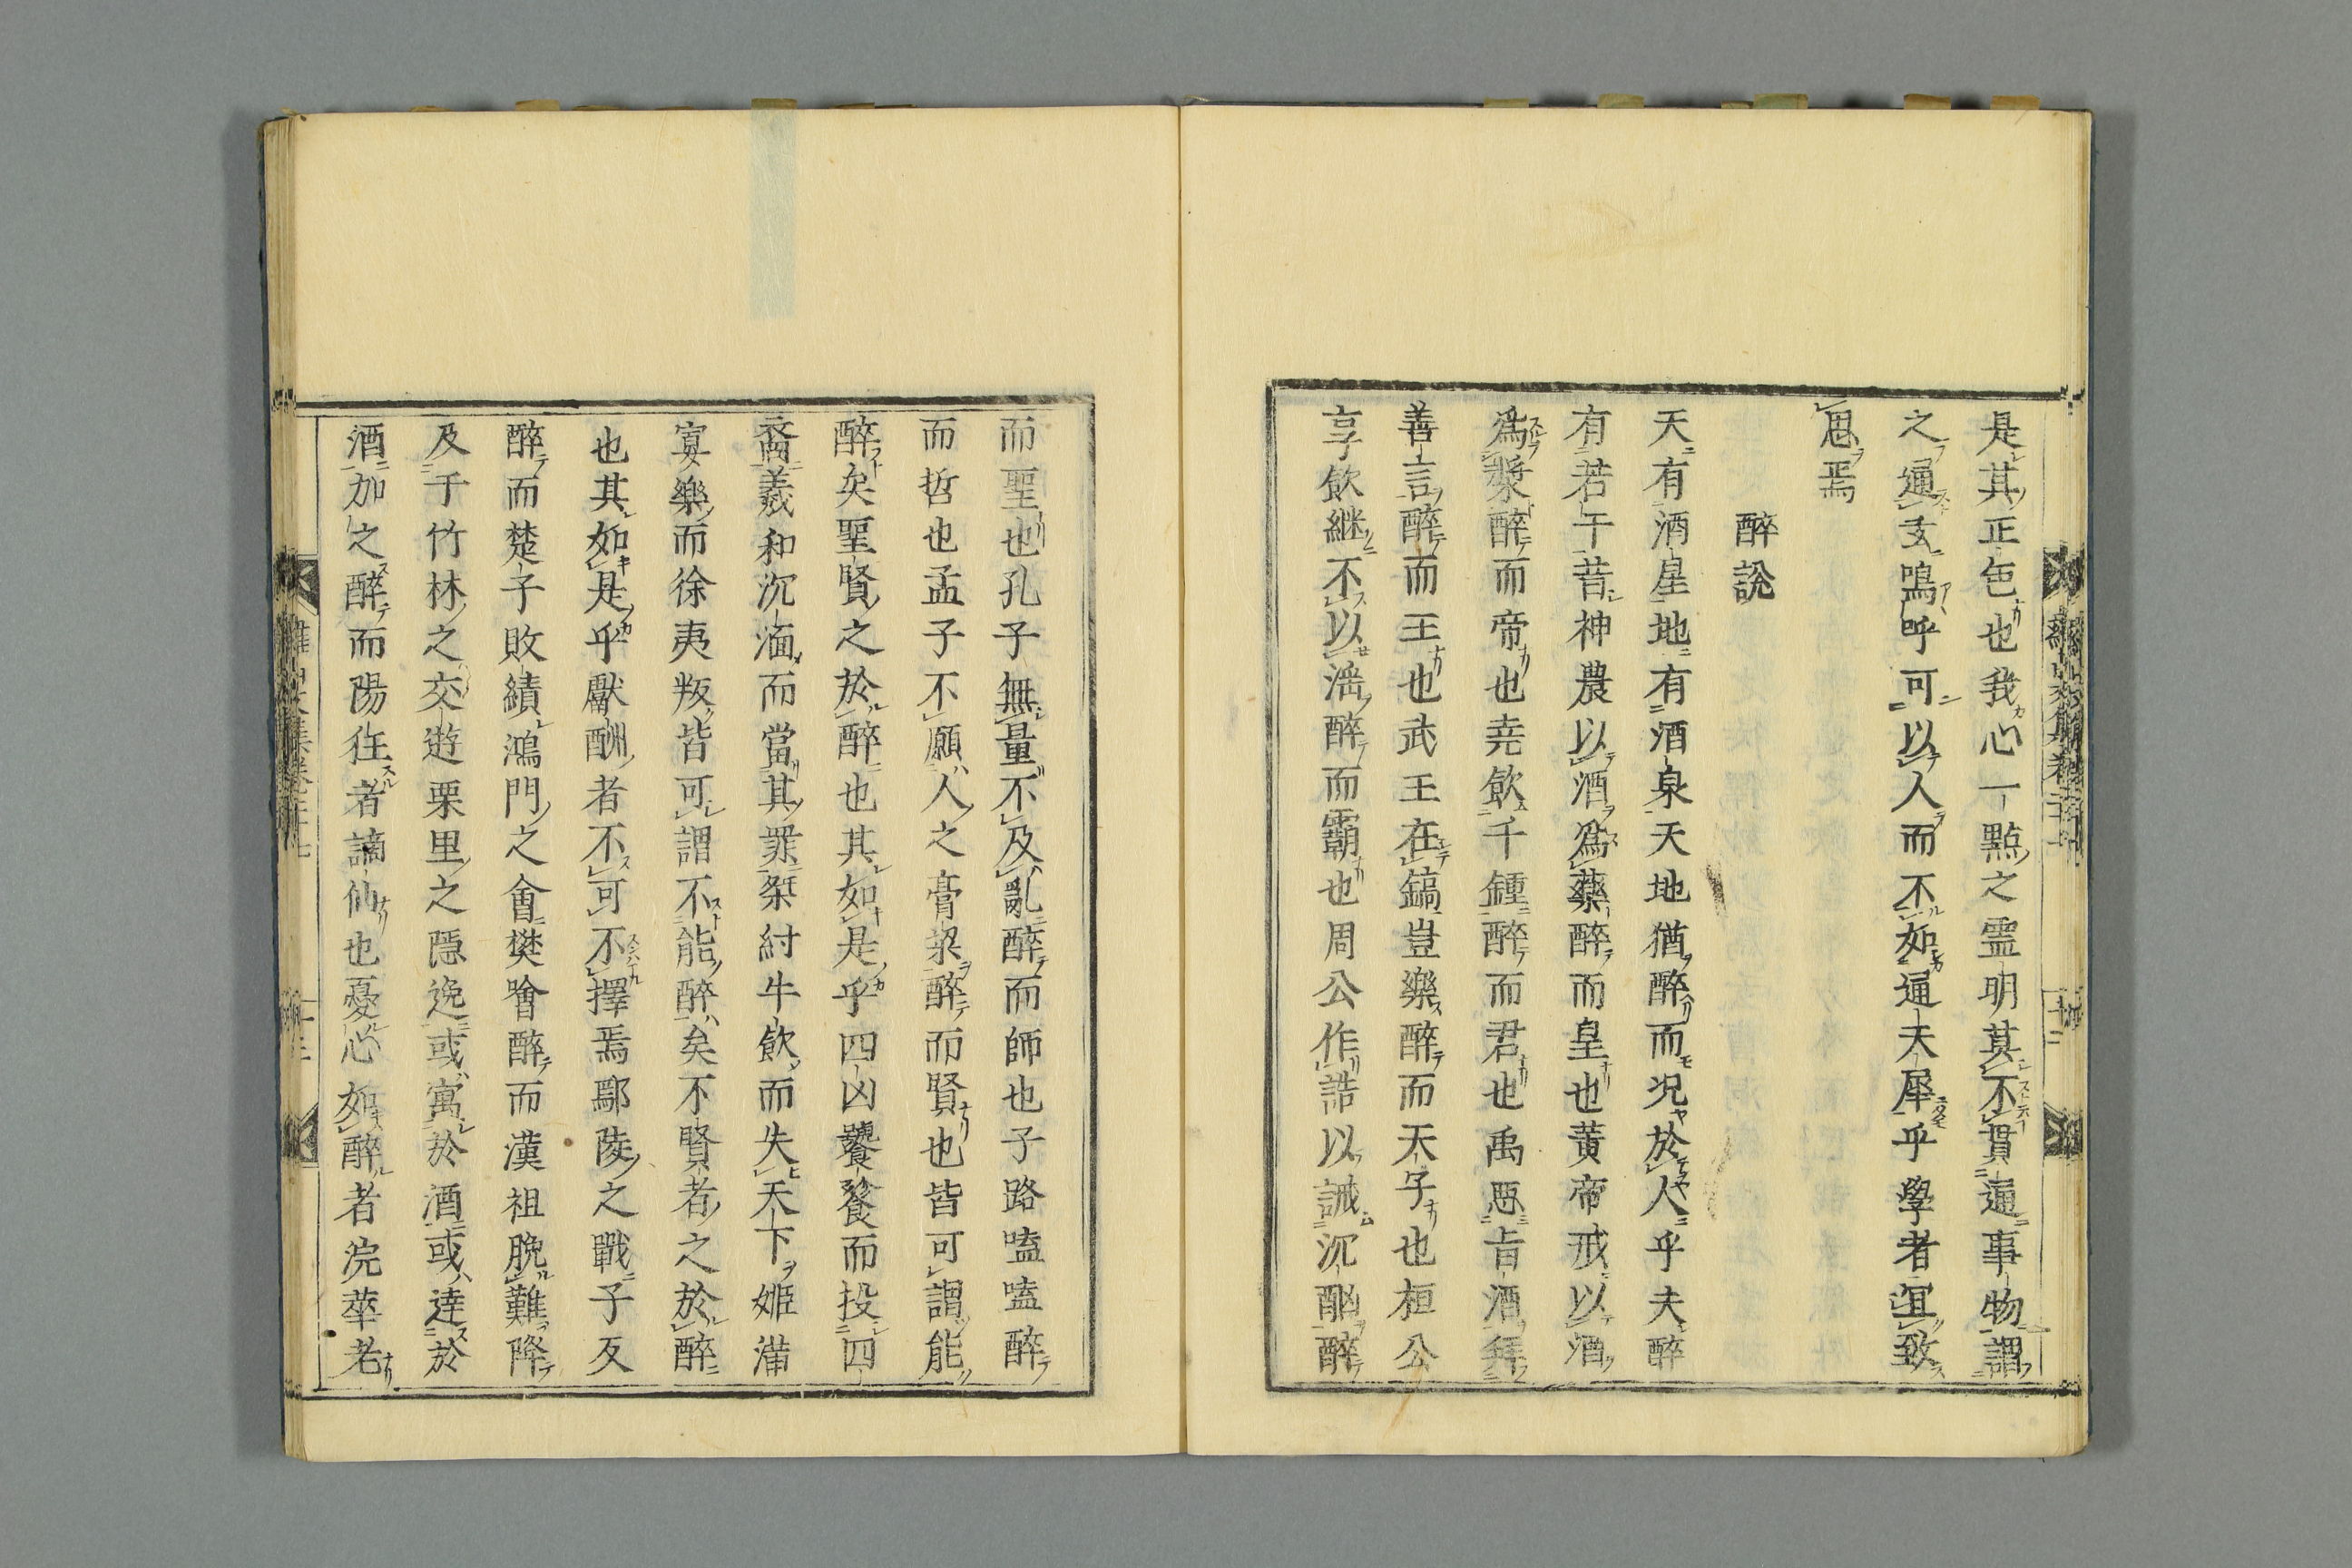 是其正色也我心一點之靈明其不貫通事物謂
之通玄嗚呼可以人而不如通天犀乎學者宜致
思焉
醉說
天有酒星地有酒泉天地猶醉而況於人乎夫醉
有若干昔神農以酒爲藥醉而皇也黄帝戒以酒
爲漿醉而帝也堯飲千鍾醉而君也禹惡旨酒拜
善言醉而王也武王在鎬豈樂醉而天子也桓公
享飲継不以滛醉而霸也周公作誥以誡沉酗醉
而聖也孔子無量不及亂醉而師也子路嗑嗑醉
而哲也孟子不願人之膏粱醉而賢也皆可謂能
醉矣聖賢之於醉也其如是乎四凶饕餮而投四
裔羲和沉湎而當其罪桀紂牛飲而失天下姬滿
宴樂而徐夷叛皆可謂不能醉矣不賢者之於醉
也其如是乎獻酬者不可不擇焉鄢陵之戰子反
醉而楚子敗績鴻門之會樊噲醉而漢祖脫難降
及于竹林之交遊栗里之隱逸或寓於酒或逹於
酒加之醉而陽狂者謫仙也憂心如醉者浣華老